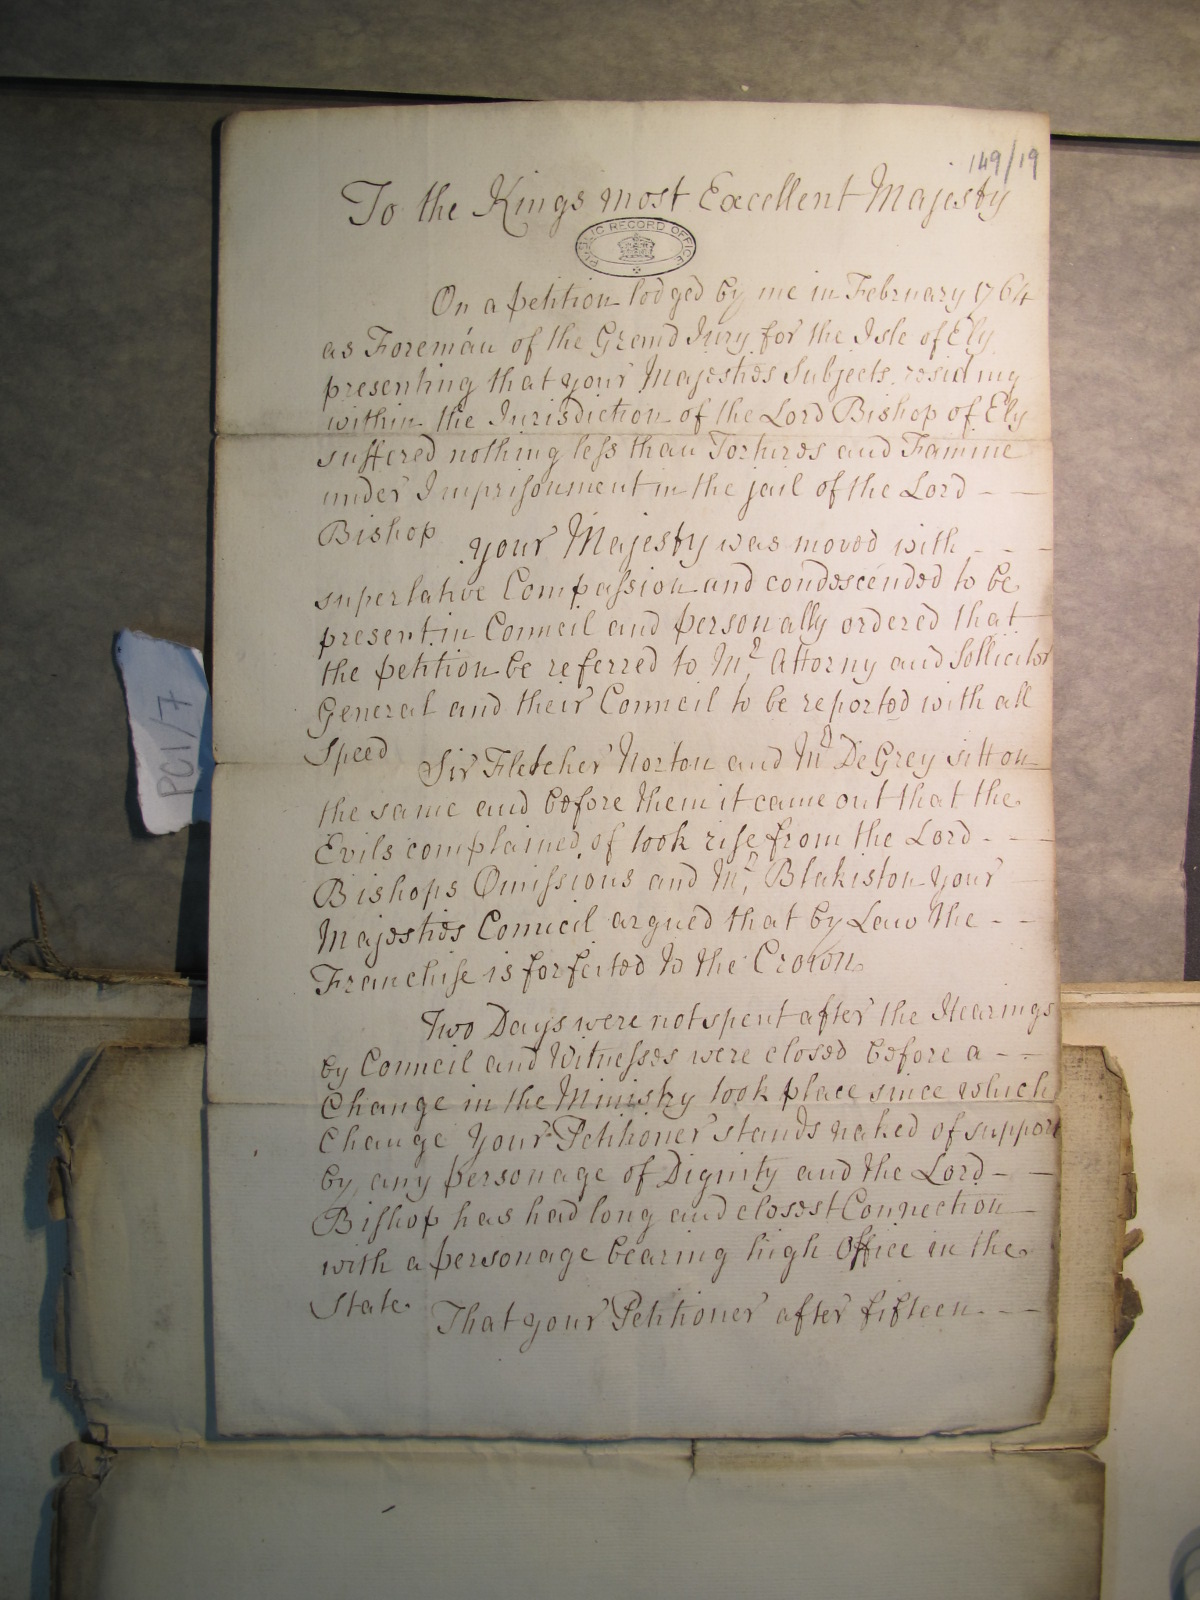 149/19
To the Kings most Excellent Majesty
PUBLIC RECORD OFFICE
On a petition lodged by me in February 1764
as Foreman of the Grand Jury for the Isle of Ely
presenting that your Majesties Subjects residing
within the Jurisdiction of the Lord Bishop of Ely
suffered nothing less than Tortures and Famine
under Imprisonment in the jail of the Lord - -
Bishop your Majesty was moved with - - -
superlative Compassion and condescended to be
present in Council and personally ordered that
the petition be referred to Mr. Attorny and Sollicitor
General and their Council to be reported with all
Speed Sir Fletcher Norton and Mr DeGrey sitt on
the same and before them it came out that the
Evils complained of took rise from the Lord - -
Bishops Omissions and Mr. Blakiston your
Majesties Council argued that by Law the - -
Franchise is forfeited to the Crown
Two Days were not spent after the Hearings
by Council and Witnesses were closed before a - -
Change in the Ministry took place since which
Change your Petitioner stands naked of support
by any personage of Dignity and the Lord - -
Bishop has had long and closest Connection
with a personage bearing high Office in the
State. That your Petitioner after fifteen - -
PC1/7